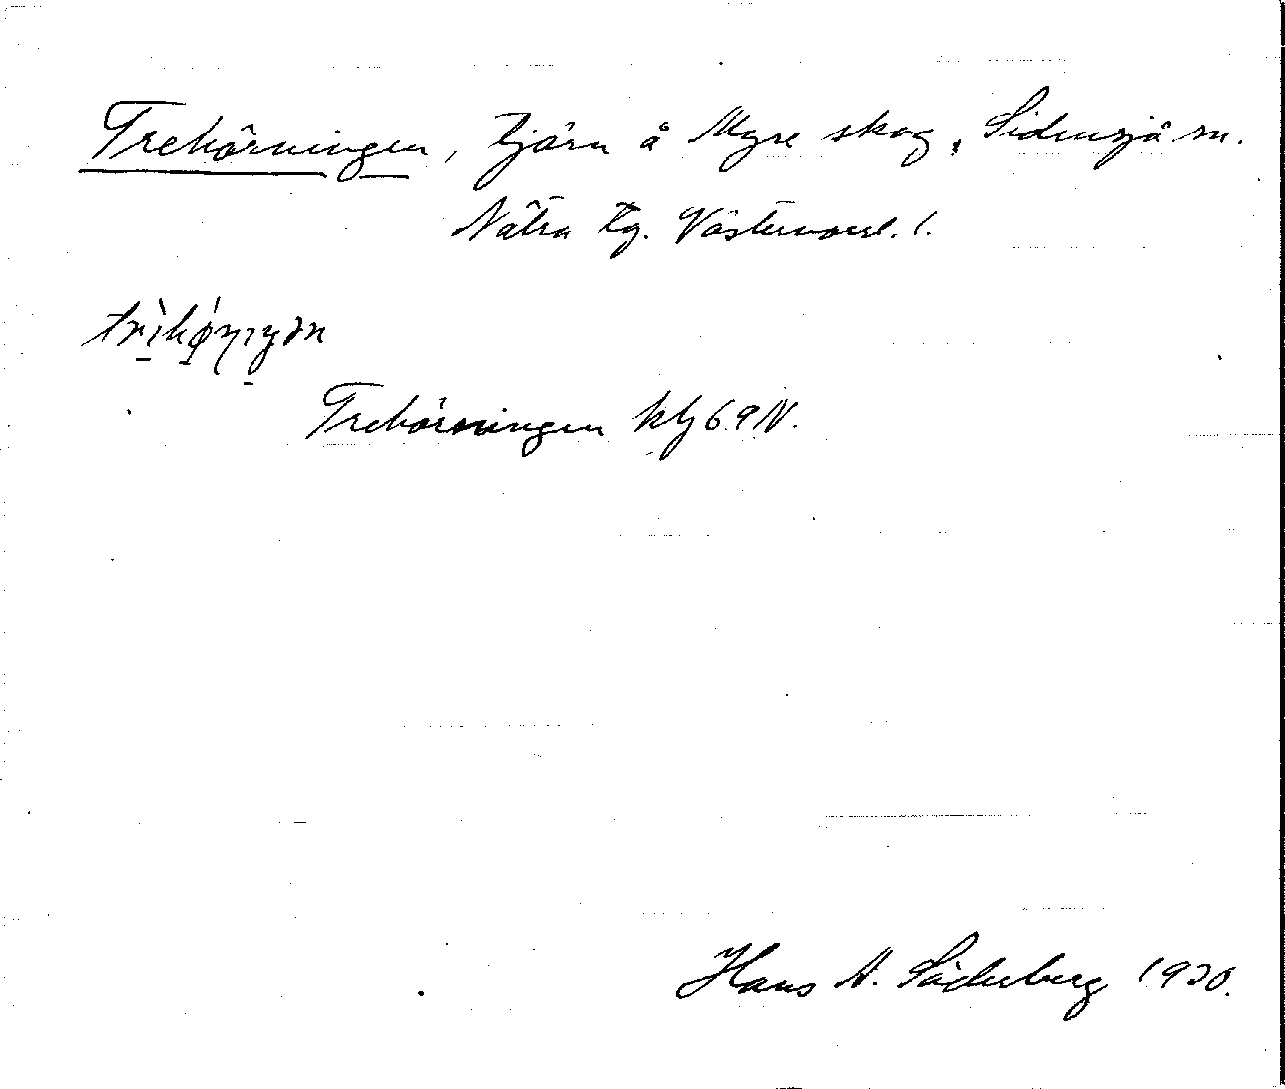 Trehörningen, tjärn å Myre skog, Sidensjö sn.
Nätra tg. Västernorrl. l.
Trehörningen hbj 69 N.
Hans A. Söderberg 1930.